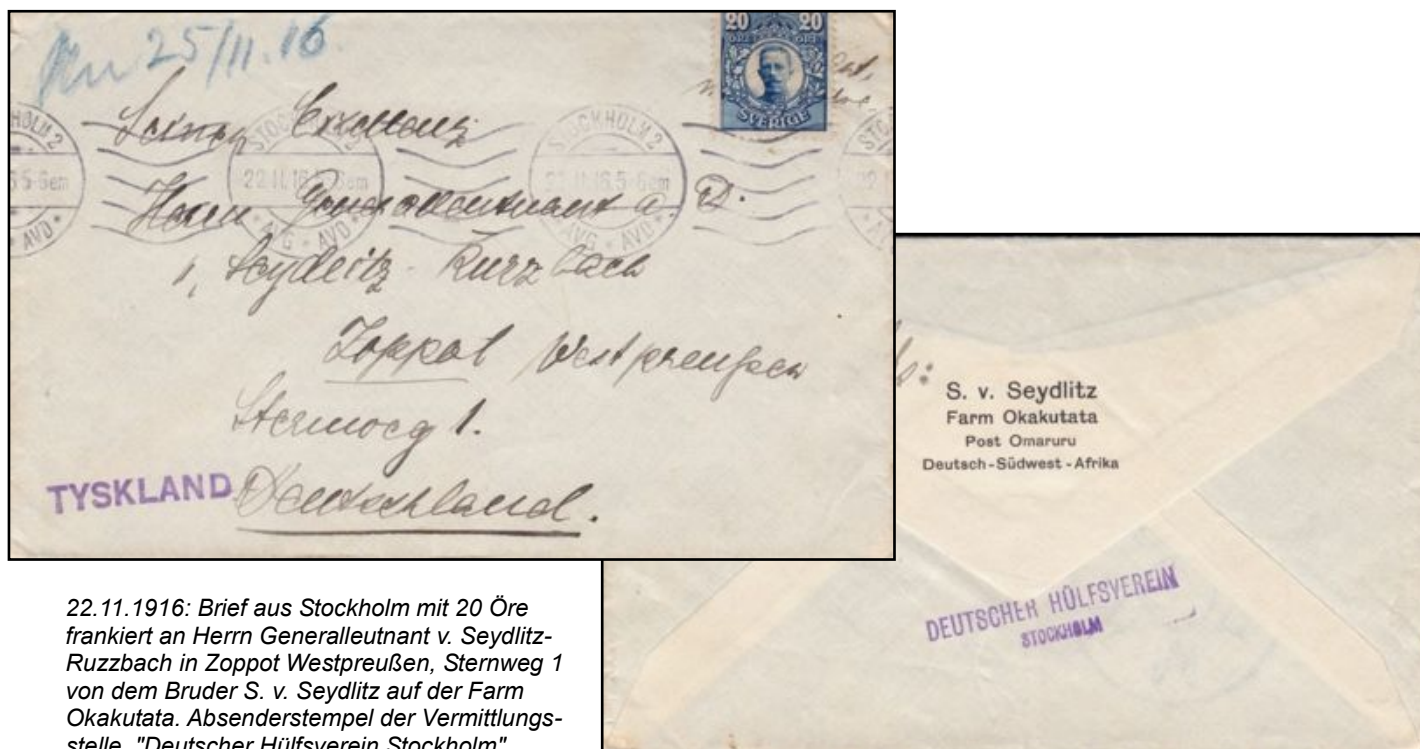 An 25/11.16.
20 20
ÖRE ÖRE
SVERIGE
STOCKHOLM 2
22.11.16.5-6em
* AVG * AVD *
Seiner Exzellenz
Herrn Generalleutnant a. D.
v. Seydlitz-Kurzbach
Zoppot Westpreußen
1.
TYSKLAND
Deutschland.
S. v. Seydlitz
Farm Okakutata
Post Omaruru
Deutsch-Südwest-Afrika
DEUTSCHER HÜLFSVEREIN
STOCKHOLM
22.11.1916: Brief aus Stockholm mit 20 Öre
frankiert an Herrn Generalleutnant v. Seydlitz-
Ruzzbach in Zoppot Westpreußen, Sternweg 1
von dem Bruder S. v. Seydlitz auf der Farm
Okakutata. Absenderstempel der Vermittlungs-
stelle "Deutscher Hülfsverein Stockholm"